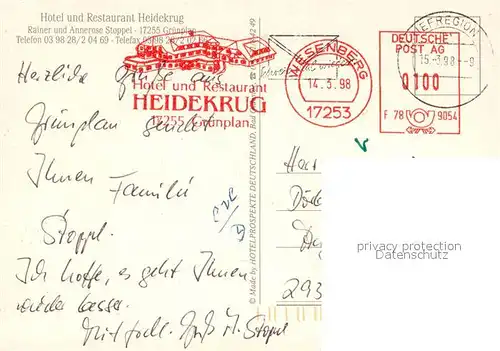 Hotel und Restaurant Heidekrug
Rainer und Annerose Stoppel · 17255 Grünplan
Telefon 03 98 28/2 04 69 · Telefax 03 98 28/2 02 66
Herzliche Grüße aus
Grünplan sendet
Ihnen Familie
Stoppel.
Ich hoffe, es geht Ihnen
wieder besser.
Mit frdl. Gruß M. Stoppel
Hotel und Restaurant
HEIDEKRUG
17255 Grünplan
WESENBERG
14.3.98
17253
DEUTSCHE
POST AG
0100
F 78 9054
BRIEFREGION
15.-3.98-9
© Made by HOTELPROSPEKTE DEUTSCHLAND, Bad
293
privacy protection
system